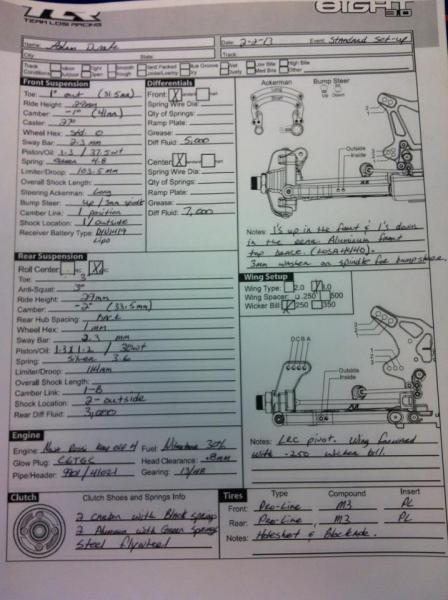 TEAM LOSI RACING
8IGHT 3.0
Name: Adam Drake Date: 2-2-13 Event: Standard Set-up
City: State: Track:
Track Conditions: Indoor Outdoor Tight Open Smooth Rough Hard Packed Loose/Loamy Blue Groove Dry Wet Dusty Low Bite Med Bite High Bite Other
Front Suspension
Toe: 1° out (31.5mm)
Ride Height: 29mm
Camber: -1° (41mm)
Caster:
Wheel Hex: Std. 0
Sway Bar: 2.3 mm
Piston/Oil: 1.3 / 37.5wt
Spring: Green 4.8
Limiter/Droop: 103.5 mm
Overall Shock Length:
Steering Ackerman: Long
Bump Steer: up / 3mm spindle
Camber Link: 1 position
Shock Location: 1/outside
Receiver Battery Type:
Lipo
Differentials
Front: Standard
Spring Wire Dia:
Qty of Springs:
Ramp Plate:
Grease:
Diff Fluid: 5,000
Center: Standard
Spring Wire Dia:
Qty of Springs:
Ramp Plate:
Grease:
Diff Fluid: 7,000
Ackerman
Long
Short
Bump Steer
Up Down
Outside
Inside
Notes: 1's up in the front & 1's down
in the rear. Aluminum front
top brace. (LOSA4440)
3mm washer on spindle for bumpsteer.
Rear Suspension
Roll Center:
Toe: 3
Anti-Squat: 3°
Ride Height: 29mm
Camber: -2° (33.5mm)
Rear Hub Spacing:
Wheel Hex: 1mm
Sway Bar: 2.3 mm
Piston/Oil: 1.3 & 1.2 / 30wt
Spring: Silver 3.6
Limiter/Droop: 114mm
Overall Shock Length:
Camber Link: 1-B
Shock Location: 2-outside
Rear Diff Fluid: 3,000
Wing Setup
Wing Type: 2.0 3.0
Wing Spacer: .250 .500
Wicker Bill: .250 .350
DCBA
Outside
Inside
Notes: LRC pivot. Wing forward
with .250 wicker bill.
Engine
Engine: Fuel: 30%
Glow Plug: C6TGC Head Clearance: .8mm
Pipe/Header: 9901 / 41021 Gearing: 13/48
Clutch
Clutch Shoes and Springs Info
2 Carbon with Black springs
2 Aluminum with Green springs
Steel flywheel
Tires
Type Compound Insert
Front: Pro-Line M3 PL
Rear: Pro-Line M3 PL
Notes: Holeshot & Blockade.